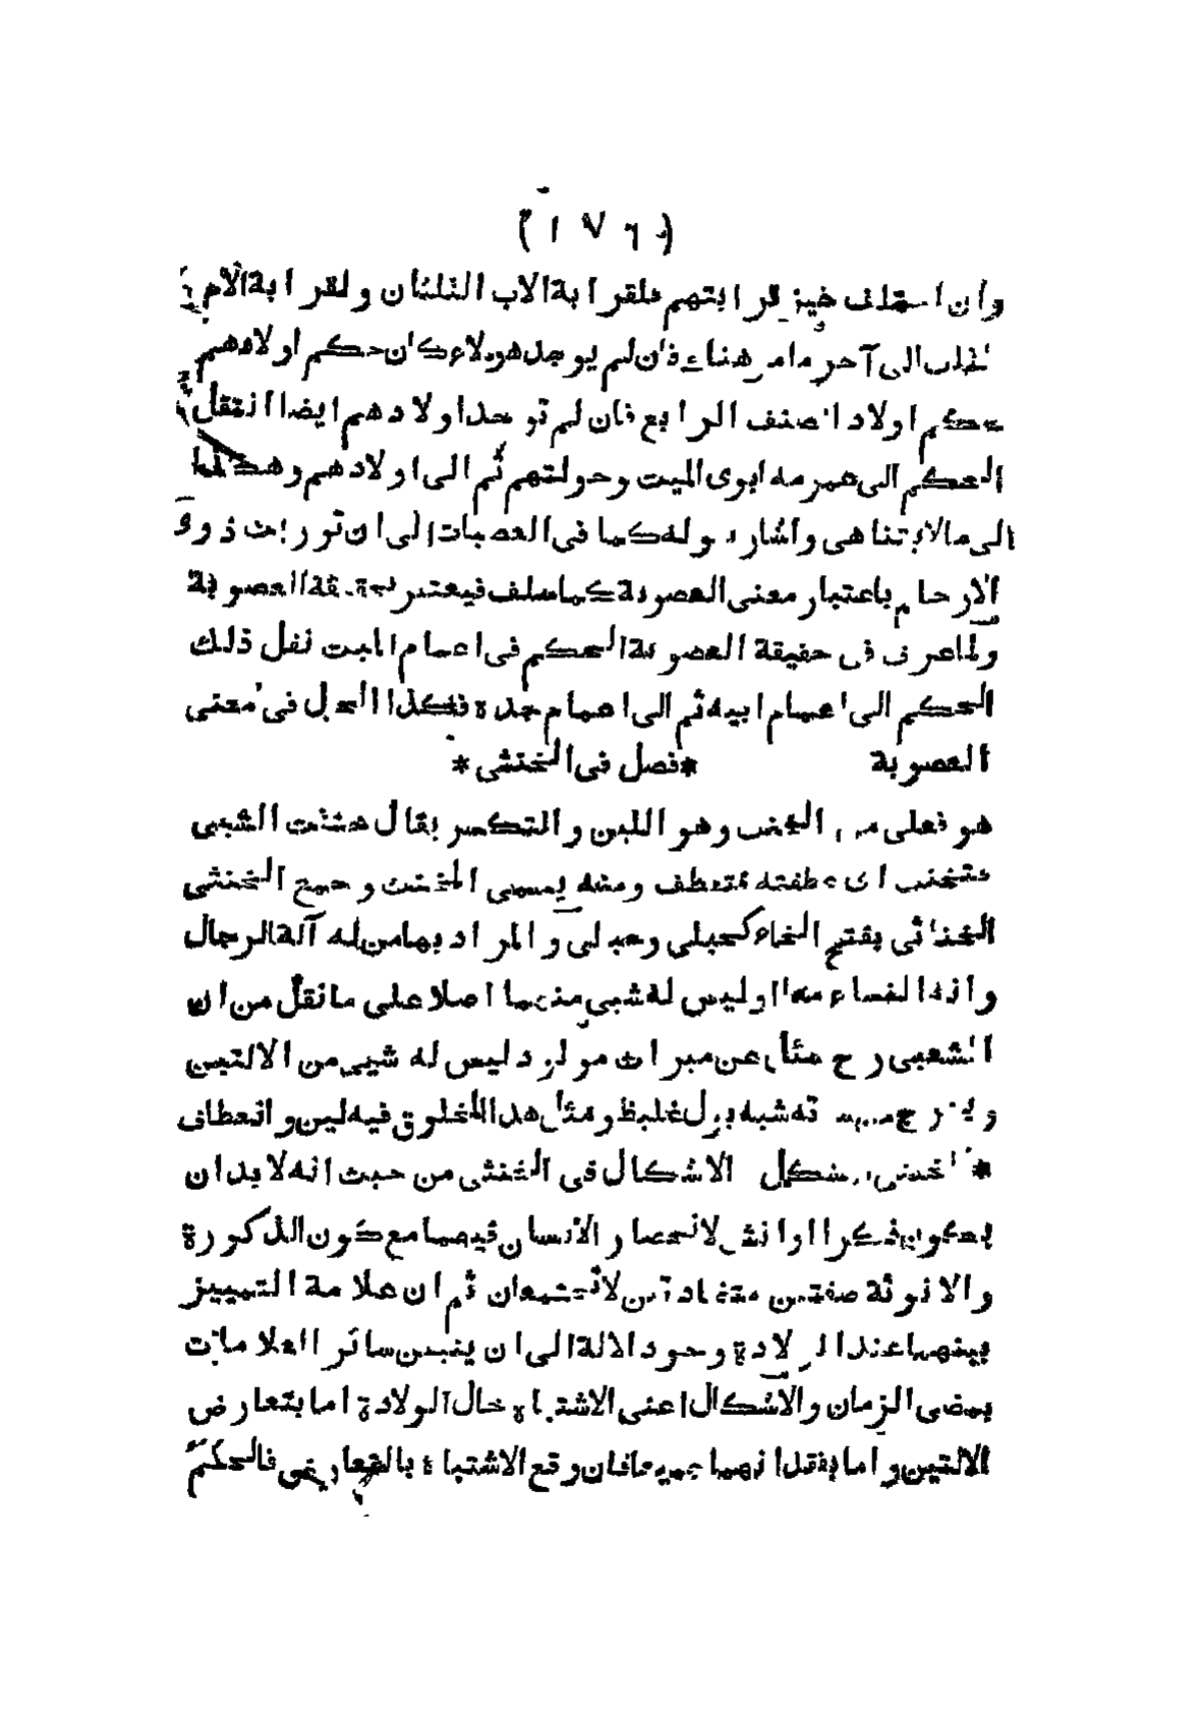 (١٧٦)
وان اختلف حيز قرابتهم فلقرابة الاب الثلثان ولقرابة الام
الثلث الى آخر ما مر هناك فان لم يوجد هولاء كان حكم اولادهم
حكم اولاد الصنف الرابع فان لم توجد اولادهم ايضا انتقل
الحكم الى عمومة ابوى الميت وخولتهم ثم الى اولادهم وهكذا
الى مالا يتناهى واشار بقوله كما فى العصبات الى ان توريث ذوى
الارحام باعتبار معنى العصوبة كما سلف فيعتبر بحقيقة العصوبة
ولما عرف فى حقيقة العصوبة الحكم فى اعمام الميت نقل ذلك
الحكم الى اعمام ابيه ثم الى اعمام جده فكذا الحال فى معنى
العصوبة *فصل فى الخنثى*
هو فعلى من الخنث وهو اللين والتكسر يقال خنثت الشيئ
فتخنث اى عطفته فتعطف ومنه يسمى المخنث وجمع الخنثى
الخناثى بفتح الخاء كحبلى وحبالى والمراد بها من له آلة الرجال
وآلة النساء معا اوليس له شيئ منهما اصلا على ما نقل من ان
الشعبى رح سئل عن ميراث مولود ليس له شيئ من الالتين
ويخرج من سرته شبه بول غليظ ومثل هذا المخلوق فيه لين وانعطاف
*الخنثى المشكل الاشكال فى الخنثى من حيث انه لا بد ان
يكون ذكرا او انثى لانحصار الانسان فيهما مع كون الذكورة
والانوثة صفتين متضادتين لا تجتمعان ثم ان علامة التمييز
بينهما عند الولادة وجود الالة الى ان يتبين سائر العلامات
بمضى الزمان والاشكال اعنى الاشتباه حال الولادة اما بتعارض
الالتين واما بفقدانهما جميعا فان وقع الاشتباه بالتعارض فالحكم